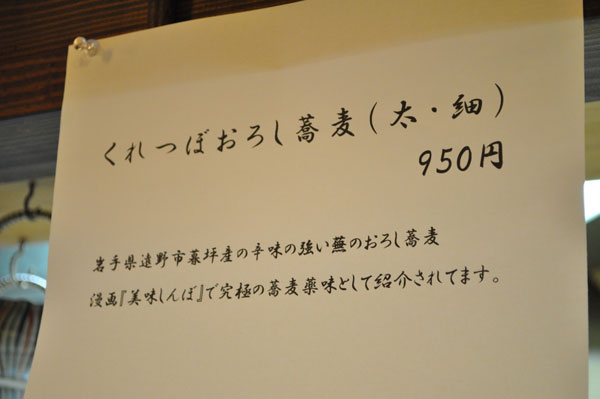 くれつぼおろし蕎麦(太・細)
950円
岩手県遠野市暮坪産の辛味の強い蕪のおろし蕎麦
漫画『美味しんぼ』で究極の蕎麦薬味として紹介されてます。